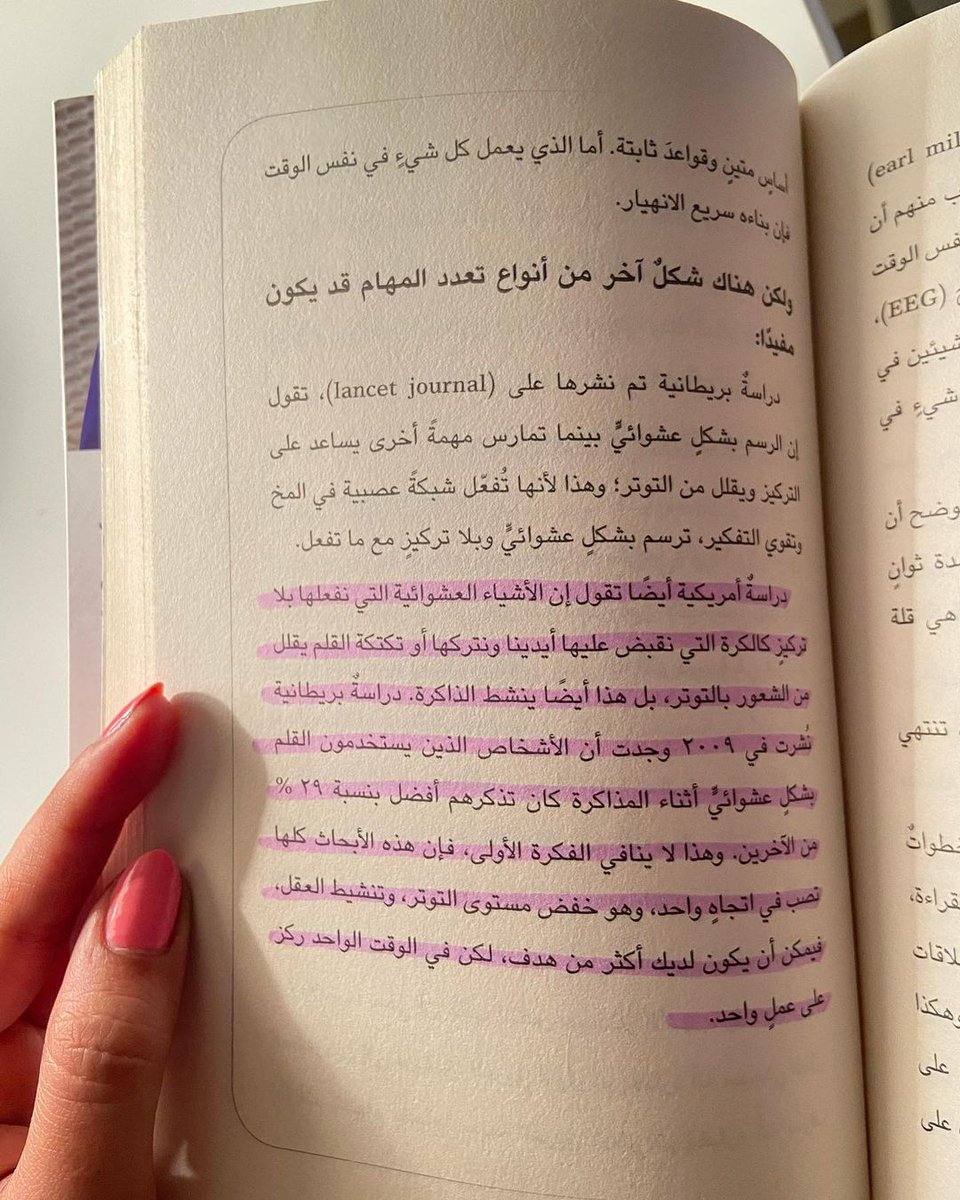 أساسٍ متينٍ وقواعدَ ثابتة. أما الذي يعمل كل شيءٍ في نفس الوقت
فإن بناءه سريع الانهيار.
ولكن هناك شكلٌ آخر من أنواع تعدد المهام قد يكون
مفيدًا:
دراسةٌ بريطانية تم نشرها على (lancet journal)، تقول
إن الرسم بشكلٍ عشوائيٍّ بينما تمارس مهمةً أخرى يساعد على
التركيز ويقلل من التوتر؛ وهذا لأنها تُفعّل شبكةً عصبية في المخ
وتقوي التفكير، ترسم بشكلٍ عشوائيٍّ وبلا تركيزٍ مع ما تفعل.
دراسةٌ أمريكية أيضًا تقول إن الأشياء العشوائية التي نفعلها بلا
تركيزٍ كالكرة التي نقبض عليها أيدينا ونتركها أو تكتكة القلم يقلل
من الشعور بالتوتر، بل هذا أيضًا ينشط الذاكرة. دراسةٌ بريطانية
نُشرت في ٢٠٠٩ وجدت أن الأشخاص الذين يستخدمون القلم
بشكلٍ عشوائيٍّ أثناء المذاكرة كان تذكرهم أفضل بنسبة ٢٩ %
من الآخرين. وهذا لا ينافي الفكرة الأولى، فإن هذه الأبحاث كلها
تصب في اتجاهٍ واحد، وهو خفض مستوى التوتر، وتنشيط العقل،
فيمكن أن يكون لديك أكثر من هدف، لكن في الوقت الواحد ركز
على عملٍ واحد.
(earl
منهم أن
نفس الوقت
(EEG)،
شيئين في
شيءٍ في
وضح أن
ثوانٍ
هي قلة
تنتهي
خطواتٌ
وهكذا
على
على